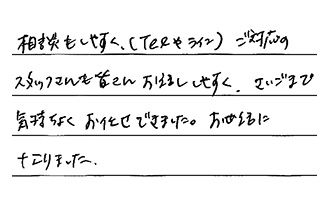 相談もしやすく、(TELやライン) ご対応の
スタッフさんも皆さんお話ししやすく、さいごまで
気持ちよくお任せできました。お世話に
なりました。